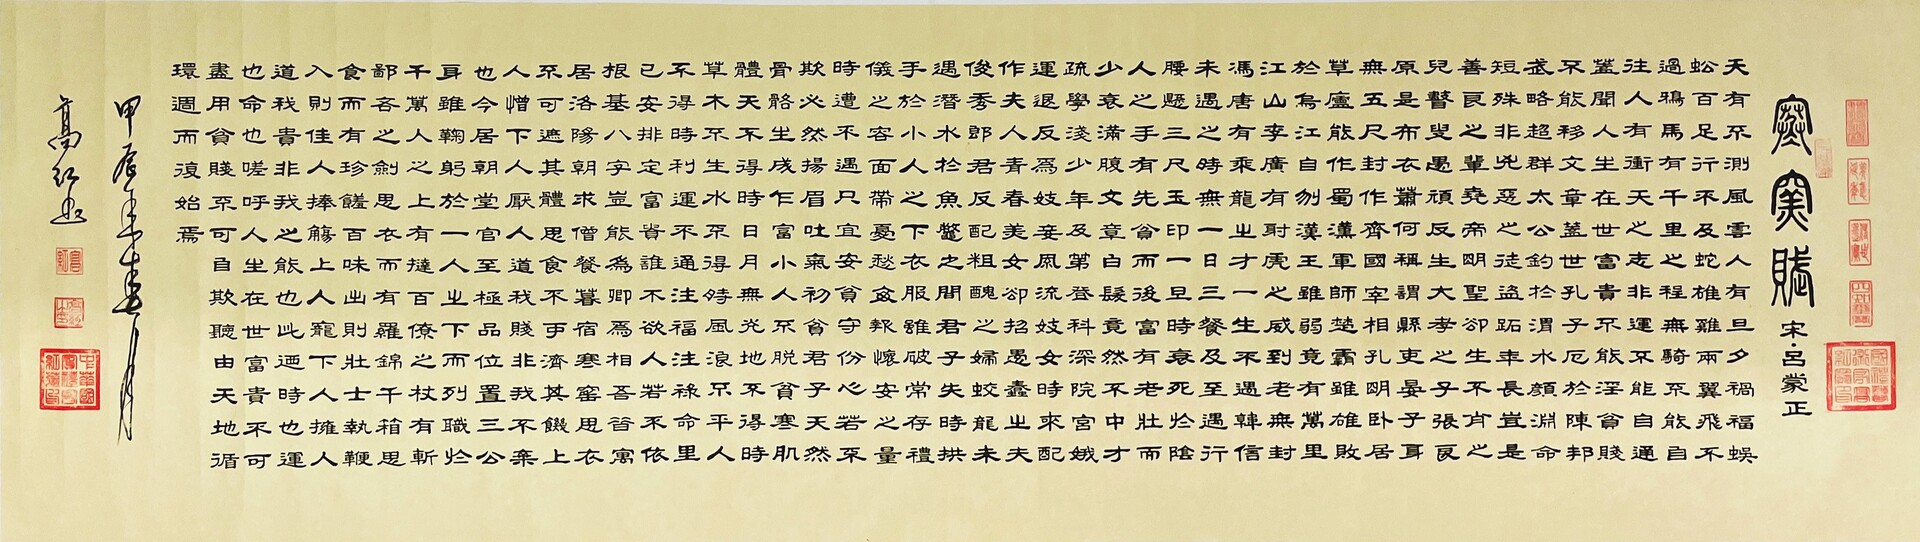 寒窯賦
宋·呂蒙正
天有不測風雲人有旦夕禍福蜈
蚣百足行不及蛇雄雞兩翼飛不
過鴉馬有千里之程無騎不能自
往人有衝天之志非運不能自通
蓋聞人生在世富貴不能淫貧賤
不能移文章蓋世孔子厄於陳邦
武略超群太公釣於渭水顏淵命
短殊非兇惡之徒盜跖年長豈是
善良之輩堯帝明聖卻生不肖之
兒瞽叟愚頑反生大孝之子張良
原是布衣蕭何稱謂縣吏晏子身
無五尺封作齊國宰相孔明臥居
草廬能作蜀漢軍師楚霸雖雄敗
於烏江自刎漢王雖弱竟有萬里
江山李廣有射虎之威到老無封
馮唐有乘龍之才一生不遇韓信
未遇之時無一日三餐及至遇行
腰懸三尺玉印一旦時衰死於陰
人之手有先貧而後富有老壯而
少衰滿腹文章白髮竟然不中才
疏學淺少年及第登科深院宮娥
運退反為妓妾風流妓女時來配
作夫人青春美女卻招愚蠢之夫
俊秀郎君反配粗醜之婦蛟龍未
遇潛水於魚鱉之間君子失時拱
手於小人之下衣服雖破常存禮
儀之容面帶憂愁每報懷安之量
時遭不遇只宜安貧守份心若不
欺必然揚眉吐氣初貧君子天然
骨骼生成乍富小人不脫貧寒肌
體天不得時日月無光地不得時
草木不生水不得時風浪不平人
不得時利運不通注福注祿命里
已安排定富貴誰不欲人若不依
根基八字豈能為卿為相吾昔寓
居洛陽朝求僧餐暮宿寒窰思衣
不可遮其體思食不可濟其饑上
人憎下人厭人道我賤非我不棄
也今居朝堂官至極品位置三公
身雖鞠躬於一人之下而列職於
千萬人之上有撻百僚之杖有斬
鄙吝之劍思衣而有羅錦千箱思
食而有珍饈百味出則壯士執鞭
入則佳人捧觴上人寵下人擁人
道我貴非我之能也此迺時也運
也命也嗟呼人生在世富貴不可
盡用貧賤不可自欺聽由天地循
環週而復始焉
甲辰年春月
高紅